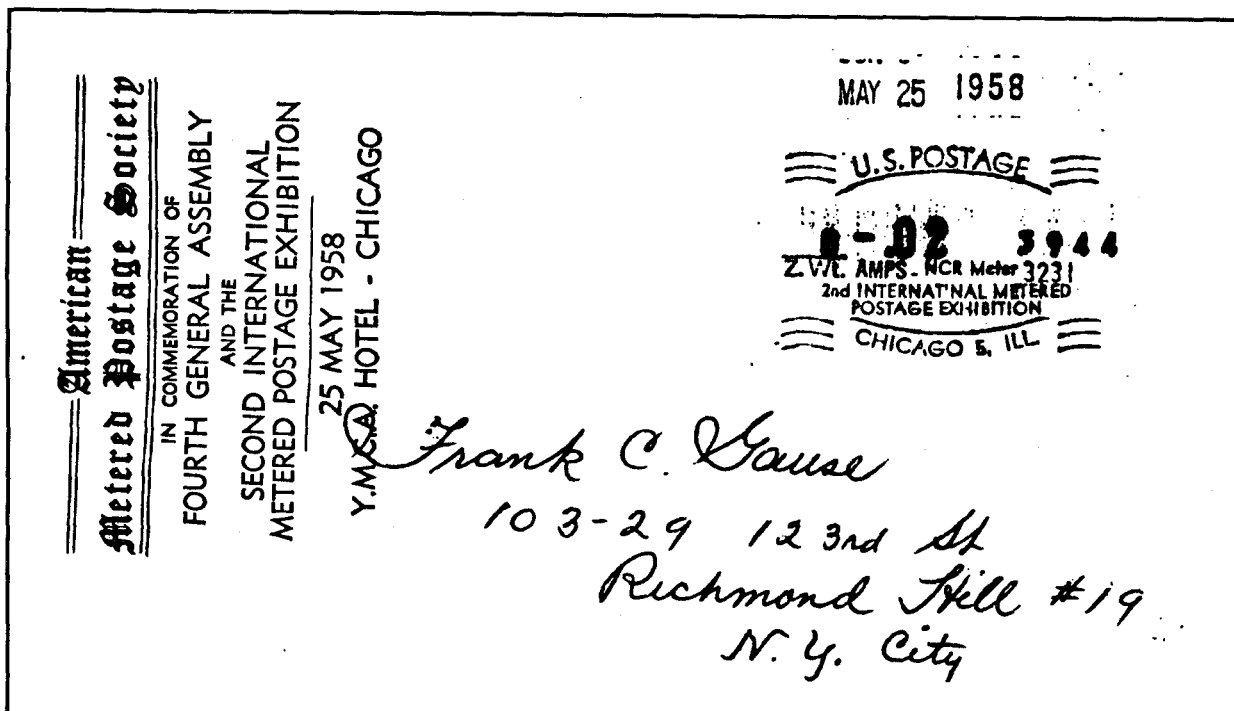 American
Metered Postage Society
IN COMMEMORATION OF
FOURTH GENERAL ASSEMBLY
AND THE
SECOND INTERNATIONAL
METERED POSTAGE EXHIBITION
25 MAY 1958
Y.M.C.A. HOTEL - CHICAGO
MAY 25 1958
U.S. POSTAGE
0-02 3944
Z.V.t. AMPS - NCR Meter 3231
2nd INTERNAT'NAL METERED
POSTAGE EXHIBITION
CHICAGO 5, ILL.
Frank C. Gause
103-29 123rd St
Richmond Hill #19
N. Y. City